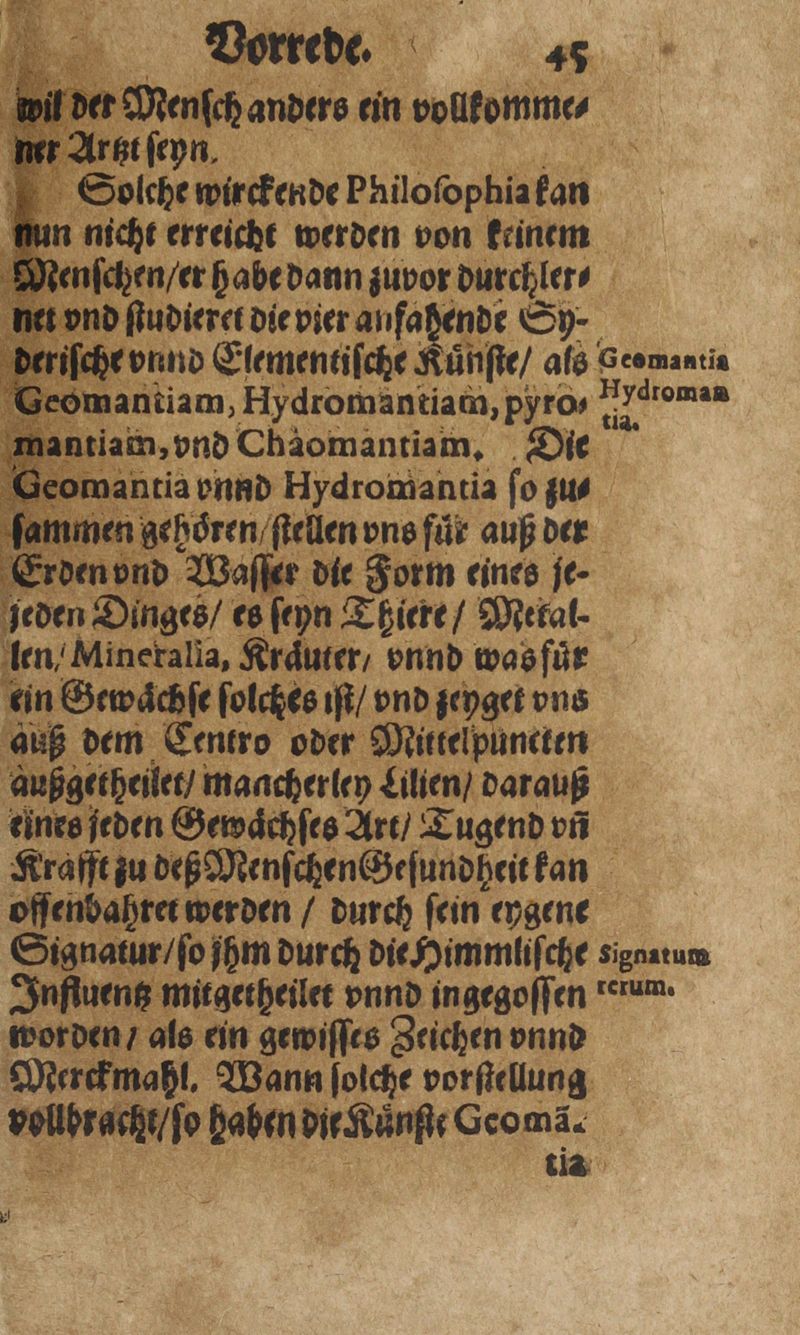 Vorrede. 45
wil der Mensch anders ein vollkomme⸗
ner Artzt seyn.
Solche wirckende Philosophia kan
nun nicht erreicht werden von keinem
Menschen/er habe dann zuvor durchler⸗
net vnd studieret die vier anfahende Sy-
derische vnnd Elementische Künste/ als
Geomantia
Geomantiam, Hydromantiam, pyro⸗
Hydroman
tia.
mantiam, vnd Chaomantiam. Die
Geomantia vnnd Hydromantia so zu⸗
sammen gehören/stellen vns für auß der
Erden vnd Wasser die Form eines je-
jeden Dinges/ es seyn Thiere/ Metal-
len/ Mineralia, Kräuter/ vnnd was für
ein Gewächse solches ist/ vnd zeyget vns
auß dem Centro oder Mittelpuncten
außgetheilet/ mancherley Lilien/ darauß
eines jeden Gewächses Art/ Tugend vñ
Krafft zu deß Menschen Gesundheit kan
offenbahret werden / durch sein eygene
Signatur/so jhm durch die Himmlische
Signatura
Influentz mitgetheilet vnnd ingegossen
rerum.
worden/ als ein gewisses Zeichen vnnd
Merckmahl. Wann solche vorstellung
vollbracht/so haben die Künste Geomã-
tia